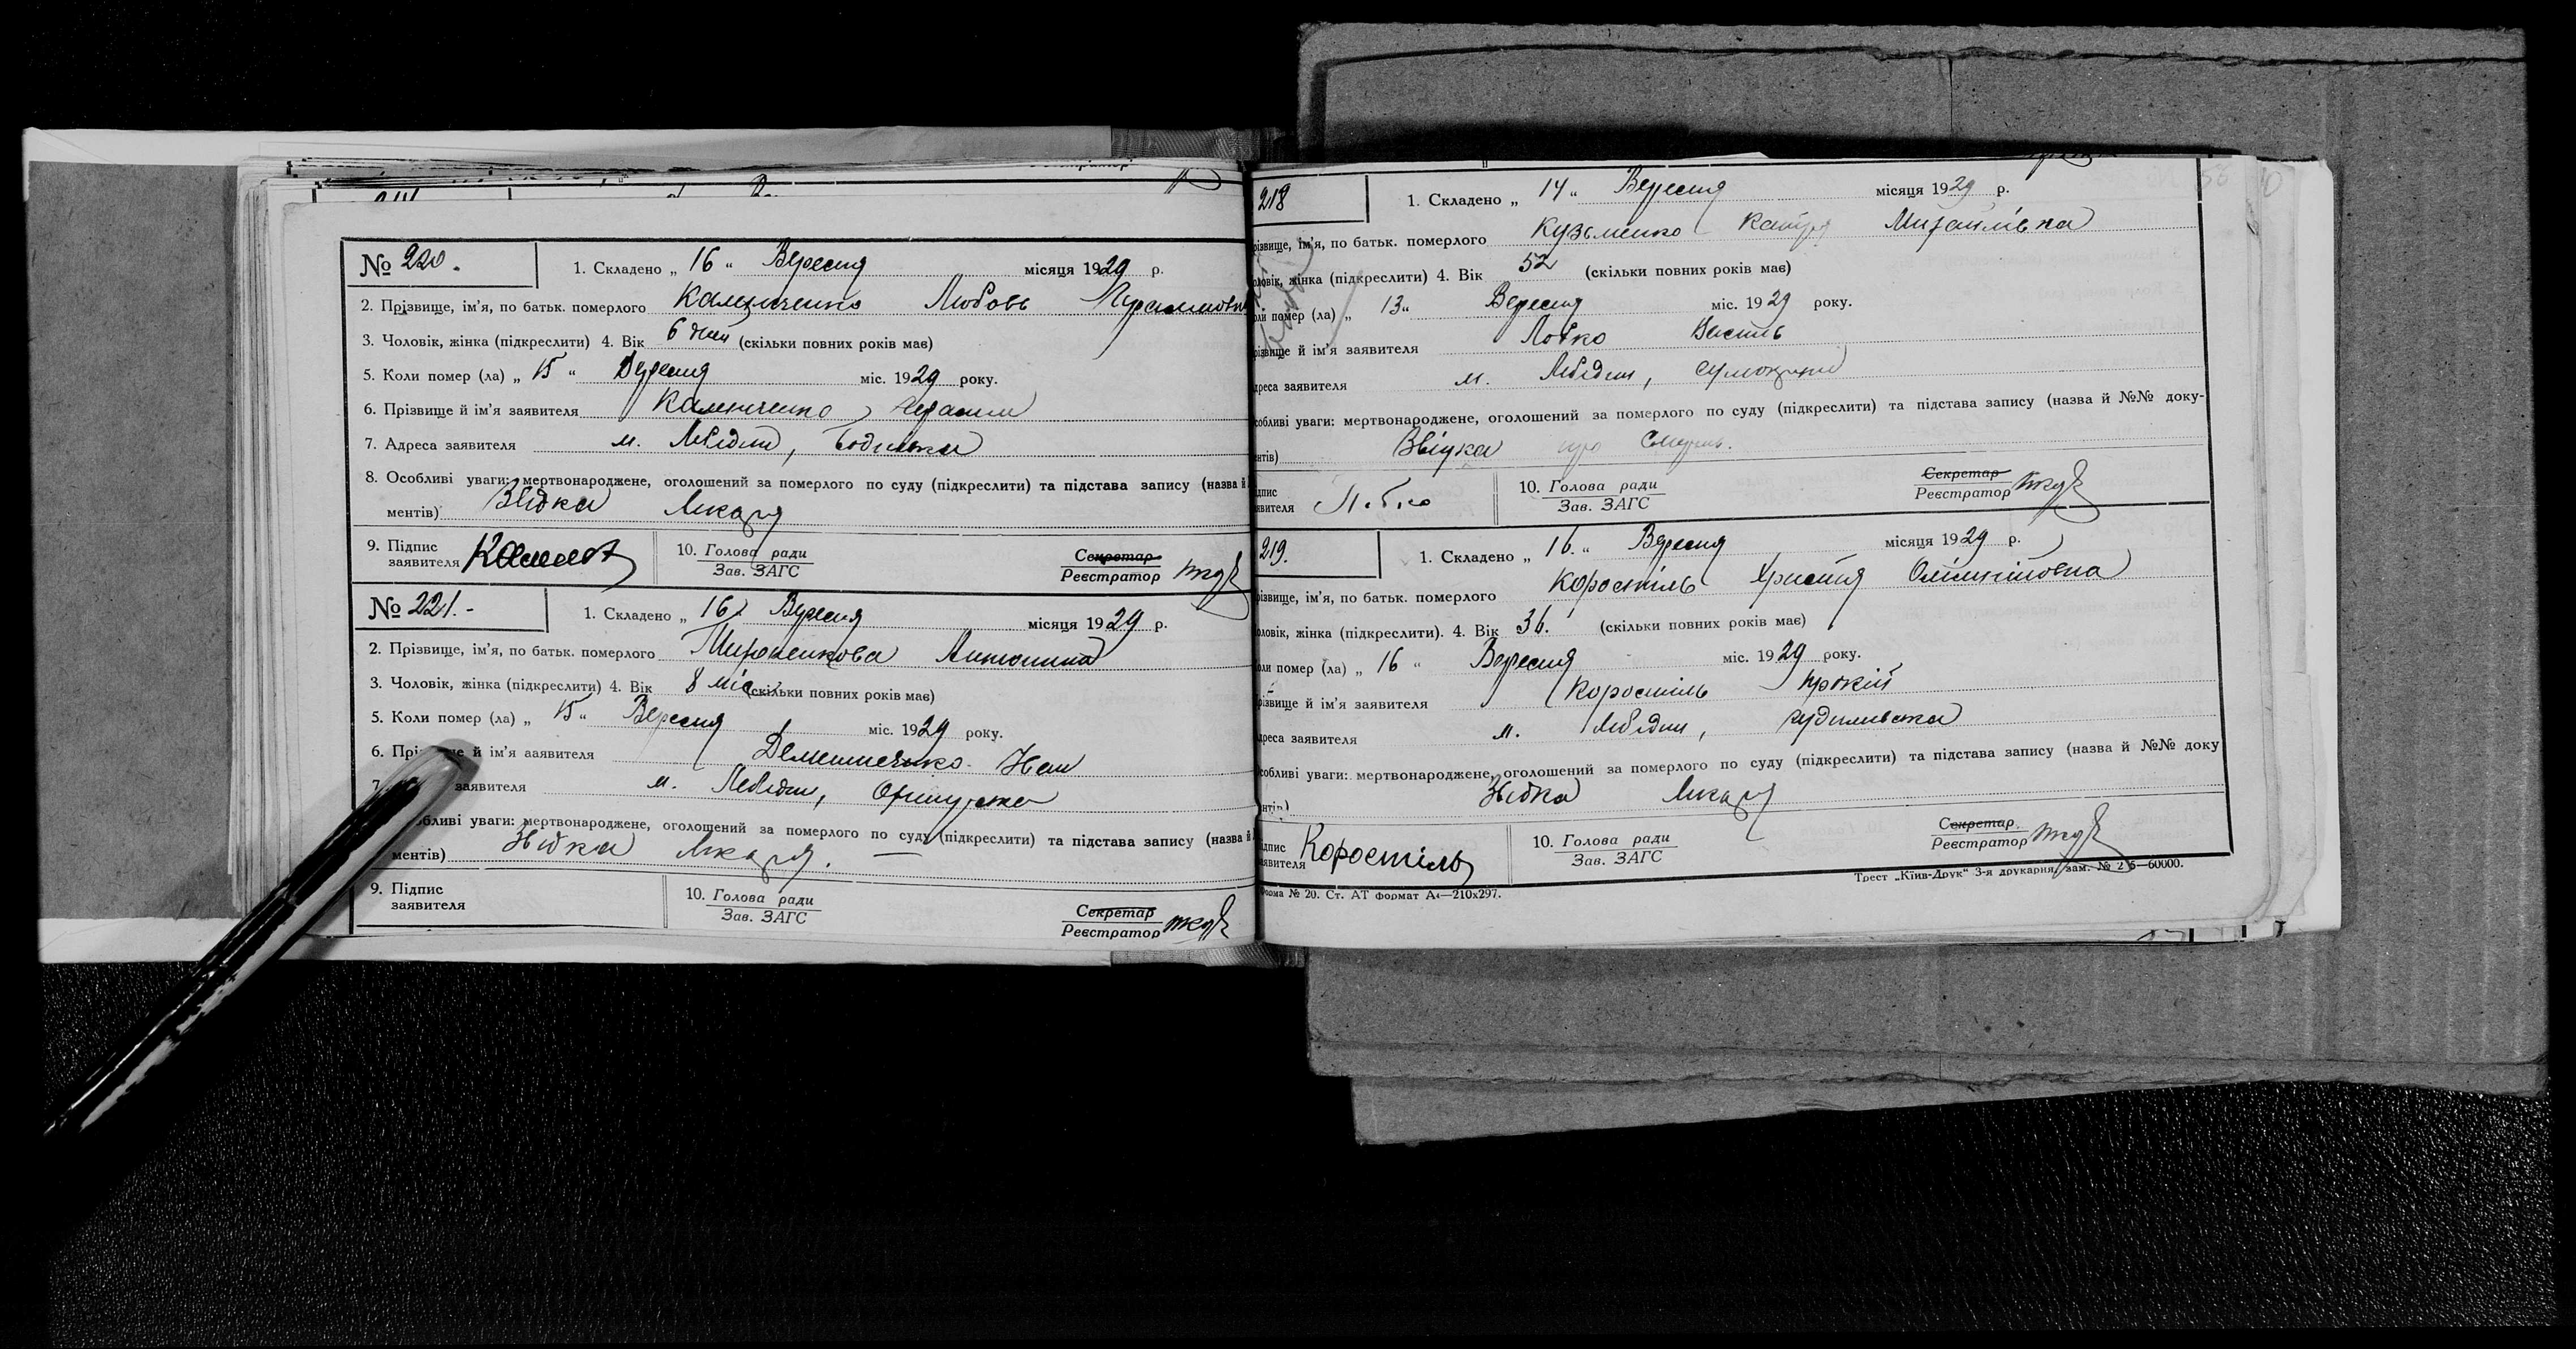 № 220.
1. Складено „ 16 “ Вересня місяця 1929 р.
2. Прізвище, ім'я, по батьк. померлого Калениченко Любовь
3. Чоловік, жінка (підкреслити) 4. Вік 6 днів (скільки повних років має)
5. Коли помер (ла) „ 15 “ Вересня міс. 1929 року.
6. Прізвище й ім'я заявителя
7. Адреса заявителя м. Лебідин,
8. Особливі уваги: мертвонароджене, оголошений за померлого по суду (підкреслити) та підстава запису (назва й
ментів) Звідка Лікаря
9. Підпис
заявителя
10. Голова ради
Зав. ЗАГС
Секретар
Реєстратор
№ 221.-
1. Складено „ 16 “ Вересня місяця 1929 р.
2. Прізвище, ім'я, по батьк. померлого Антонина
3. Чоловік, жінка (підкреслити) 4. Вік 8 міс (скільки повних років має)
5. Коли помер (ла) „ 15 “ Вересня міс. 1929 року.
6. й ім'я заявителя
7. заявителя м. Лебідин,
уваги: мертвонароджене, оголошений за померлого по суду (підкреслити) та підстава запису (назва й
ментів) Звідка Лікаря. —
9. Підпис
заявителя
10. Голова ради
Зав. ЗАГС
Секретар
Реєстратор
218
1. Складено „ 14 “ Вересня місяця 1929 р.
різвище, ім'я, по батьк. померлого Кузьменко Катря Михайлівна
оловік, жінка (підкреслити) 4. Вік 52 (скільки повних років має)
оли помер (ла) „ 13 “ Вересня міс. 1929 року.
різвище й ім'я заявителя Лобко Василь
дреса заявителя м. Лебідин,
собливі уваги: мертвонароджене, оголошений за померлого по суду (підкреслити) та підстава запису (назва й №№ доку-
ентів) Звідка про Смерть.
дпис
явителя Лобко
10. Голова ради
Зав. ЗАГС
Секретар
Реєстратор
219.
1. Складено „ 16. “ Вересня місяця 1929 р.
різвище, ім'я, по батьк. померлого Коростіль Христя
оловік, жінка (підкреслити). 4. Вік 36. (скільки повних років має)
оли помер (ла) „ 16 “ Вересня міс. 1929 року.
різвище й ім'я заявителя Коростіль
дреса заявителя м. Лебідин,
собливі уваги: мертвонароджене, оголошений за померлого по суду (підкреслити) та підстава запису (назва й №№ доку
ентів) Звідка Лікаря
дпис
явителя Коростіль
10. Голова ради
Зав. ЗАГС
Секретар
Реєстратор
Форма № 20. Ст. АТ формат А4—210х297.
Трест „Київ-Друк“ 3-я друкарня, зам.